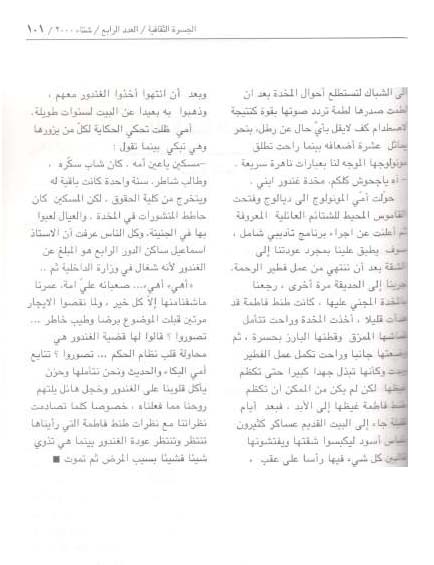 الجسرة الثقافية / العدد الرابع / شتاء ٢٠٠٠ / ١٠١
إلى الشباك لتستطلع أحوال المخدة بعد أن
لطمت صدرها لطمة تردد صوتها بقوة كنتيجة
لاصطدام كف لايقل بأي حال عن رطل، بنحر
يماثل عشرة أضعافه بينما راحت تطلق
مونولوجها الموجه لنا بعبارات نافرة سريعة .
- آه ياجحوش كلكم، مخدة غندور ابني .
حولت أمي المونولوج الى ديالوج وفتحت
القاموس المحيط للشتائم العائلية المعروفة
ثم أعلنت عن اجراء برنامج تأديبي شامل ،
سوف يطبق علينا بمجرد عودتنا إلى
الشقة بعد أن ننتهي من عمل فطير الرحمة.
جرينا إلى الحديقة مرة أخرى ، رجعنا
بالمخدة المجني عليها ، كانت طنط فاطمة قد
هدأت قليلا ، أخذت المخدة وراحت تتأمل
قماشها الممزق وقطنها البارز بحسرة ، ثم
وضعتها جانبا وراحت تكمل عمل الفطير
وبدت وكأنها تبذل جهدا كبيرا حتى تكظم
غيظها. لكن لم يكن من الممكن ان تكظم
طنط فاطمة غيظها إلى الأبد ، فبعد أيام
قليلة جاء إلى البيت القديم عساكر كثيرون
بلباس أسود ليكبسوا شقتها ويفتشونها
قالبين كل شيء فيها رأسا على عقب ،
وبعد أن انتهوا أخذوا الغندور معهم ،
وذهبوا به بعيدا عن البيت لسنوات طويلة.
أمي ظلت تحكي الحكاية لكل من يزورها
وهي تبكي بينما تقول :
-مسكين ياعين أمه . كان شاب سكره ،
وطالب شاطر، سنة واحدة كانت باقية له
ويتخرج من كلية الحقوق . لكن المسكين كان
حاطط المنشورات في المخدة ، والعيال لعبوا
بها في الجنينة، وكل الناس عرفت أن الاستاذ
اسماعيل ساكن الدور الرابع هو المبلغ عن
الغندور لأنه شغال في وزارة الداخلية ثم ..
«أهيء أهيء،... صعبانه علي امه. عمرنا
ماشفنامنها إلا كل خير ، ولما نقصوا الايجار
مرتين قبلت الموضوع برضا وطيب خاطر ...
تصوروا ؟ قالوا لها قضية الغندور هي
محاولة قلب نظام الحكم ... تصوروا ؟ تتابع
أمي البكاء والحديث ونحن نتأملها وحزن
يأكل قلوبنا على الغندور وخجل هائل يلتهم
روحنا مما فعلناه ، خصوصا كلما تصادمت
نظراتنا مع نظرات طنط فاطمة التي رأيناها
تنتظر وتنتظر عودة الغندور بينما هي تذوي
شيئا فشيئا بسبب المرض ثم تموت ■